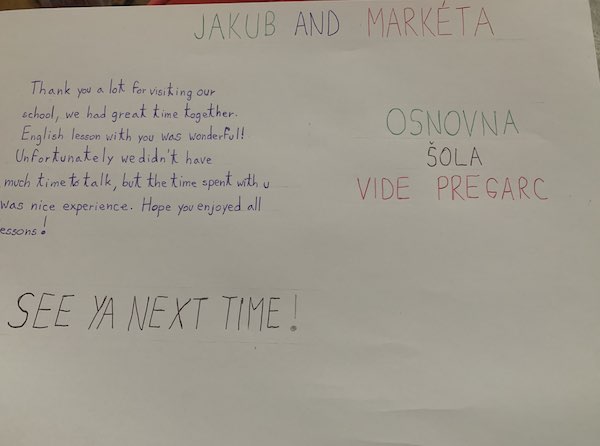 JAKUB AND MARKÉTA
Thank you a lot for visiting our
school, we had great time together.
English lesson with you was wonderful!
Unfortunately we didn't have
much time to talk, but the time spent with u
was nice experience. Hope you enjoyed all
essons!
OSNOVNA
ŠOLA
VIDE PREGARC
SEE YA NEXT TIME!